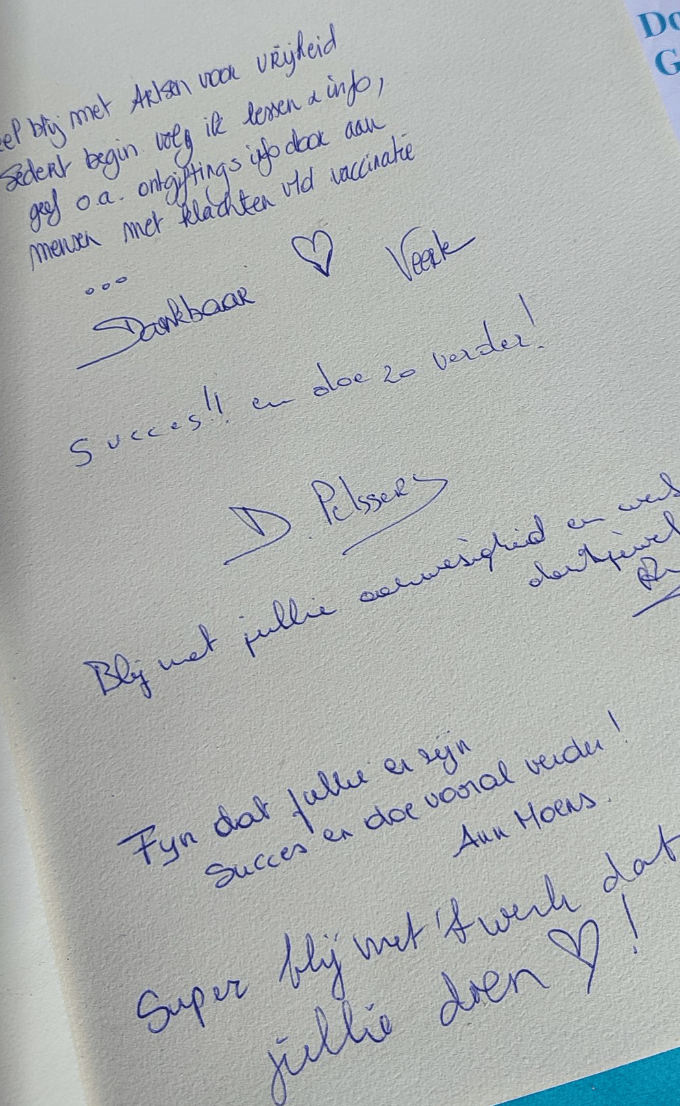 Do
G
eel blij met Artsen voor vrijheid
Sedert begin volg ik lessen & info,
geef o.a. ontgiftings info door aan
mensen met klachten vld vaccinatie
...
Dankbaar ♡ Veerle
Succes!! en doe zo verder!
D. Pelssers
Blij met jullie aanwesigheid en werk
Fyn dat jullie er zijn
Succes en doe vooral verder!
Ann Moens.
Super blij met 't werk dat
jullie doen ♡!